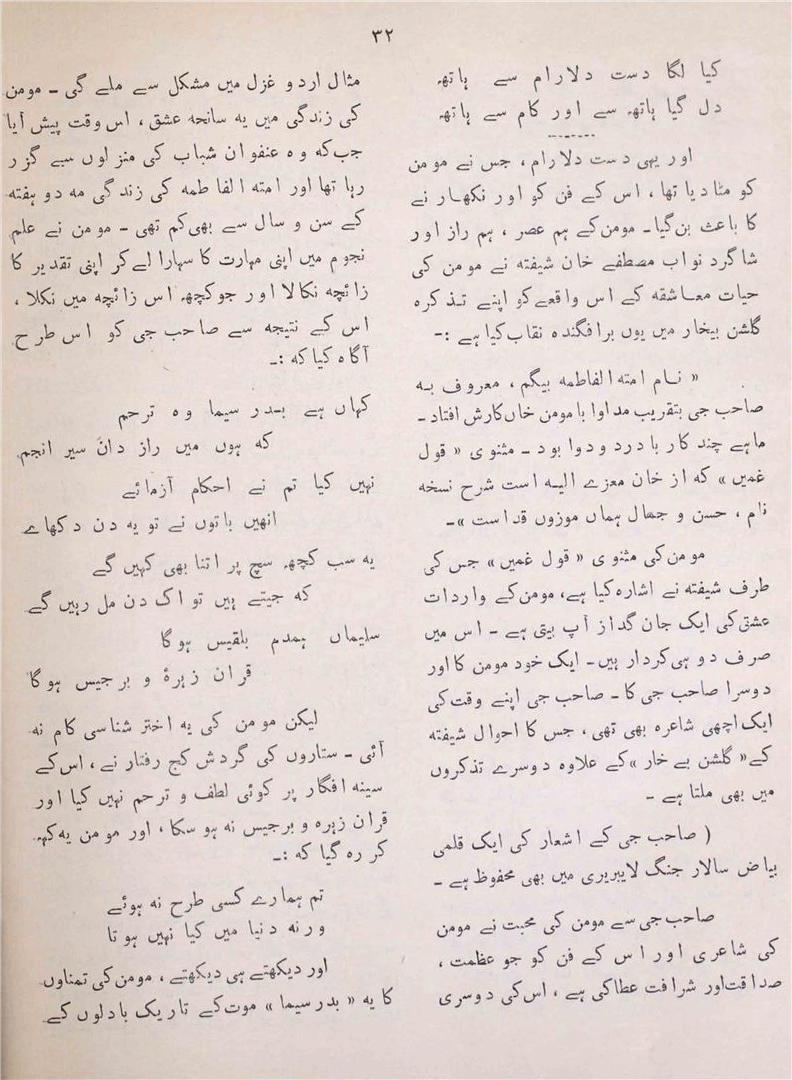 ۳۲
کیا لگا دست دلارام سے ہاتھ
دل گیا ہاتھ سے اور کام سے ہاتھ
اور یہی دست دلارام، جس نے مومن
کو مٹادیا تھا، اس کے فن کو اور نکھارنے
کا باعث بن گیا۔ مومن کے ہم عصر، ہم راز اور
شاگرد نواب مصطفے خان شیفتہ نے مومن کی
حیات معاشقہ کے اس واقعے کو اپنے تذکرہ
گلشن بیخار میں یوں برافگندہ نقاب کیا ہے :-
« نام امتہ الفاطمہ بیگم، معروف بہ
صاحب جی بتقریب مداوا بامومن خاں کارش افتاد۔
ماہے چند کار بادرد ودوا بود۔ مثنوی « قول
غمیں » کہ از خان معزے الیہ است شرح نسخہ
نام، حسن و جمال ہماں موزوں قد است »۔
مومن کی مثنوی « قول غمیں » جس کی
طرف شیفتہ نے اشارہ کیا ہے، مومن کے واردات
عشق کی ایک جان گداز آپ بیتی ہے۔ اس میں
صرف دو ہی کردار ہیں۔ ایک خود مومن کا اور
دوسرا صاحب جی کا۔ صاحب جی اپنے وقت کی
ایک اچھی شاعرہ بھی تھی، جس کا احوال شیفتہ
کے « گلشن بے خار » کے علاوہ دوسرے تذکروں
میں بھی ملتا ہے۔
( صاحب جی کے اشعار کی ایک قلمی
بیاض سالار جنگ لایبریری میں بھی محفوظ ہے۔
صاحب جی سے مومن کی محبت نے مومن
کی شاعری اور اس کے فن کو جو عظمت،
صداقت اور شرافت عطا کی ہے، اس کی دوسری
مثال اردو غزل میں مشکل سے ملے گی۔ مومن
کی زندگی میں یہ سانحہ عشق، اس وقت پیش آیا
جب کہ وہ عنفوان شباب کی منزلوں سے گزر
رہا تھا اور امتہ الفاطمہ کی زندگی مہ دو ہفتہ
کے سن و سال سے بھی کم تھی۔ مومن نے علم
نجوم میں اپنی مہارت کا سہارا لے کر اپنی تقدیر کا
زائچہ نکالا اور جو کچھ اس زائچہ میں نکلا،
اس کے نتیجہ سے صاحب جی کو اس طرح
آگاہ کیا کہ :-
کہاں ہے بدر سیما وہ ترحم
کہ ہوں میں راز دان سیر انجم
نہیں کیا تم نے احکام آزمائے
انھیں باتوں نے تو یہ دن دکھاے
یہ سب کچھ سچ پر اتنا بھی کہیں گے
کہ جیتے ہیں تو اک دن مل رہیں گے
سلیماں ہمدم بلقیس ہوگا
قران زہرۂ و برجیس ہوگا
لیکن مومن کی یہ اختر شناسی کام نہ
آئی۔ ستاروں کی گردش کج رفتار نے، اس کے
سینہ افگار پر کوئی لطف و ترحم نہیں کیا اور
قران زہرہ و برجیس نہ ہو سکا، اور مومن یہ کہہ
کر رہ گیا کہ :-
تم ہمارے کسی طرح نہ ہوئے
ورنہ دنیا میں کیا نہیں ہوتا
اور دیکھتے ہی دیکھتے، مومن کی تمناوں
کا یہ « بدر سیما » موت کے تاریک بادلوں کے